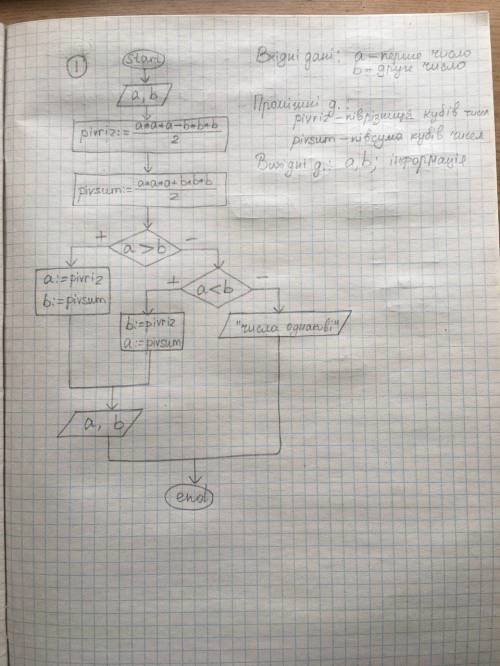 1
start
Вхідні дані: a – перше число
b – друге число
a, b
Проміжні д.:
pivriz – піврізниця кубів чисел
pivriz:= a*a*a-b*b*b
2
pivsum – півсума кубів чисел
Вихідні д.: a, b; інформація
pivsum:= a*a*a+b*b*b
2
+ a>b –
a:=pivriz
b:=pivsum
+ a<b –
b:=pivriz
a:=pivsum
"числа однакові"
a, b
end